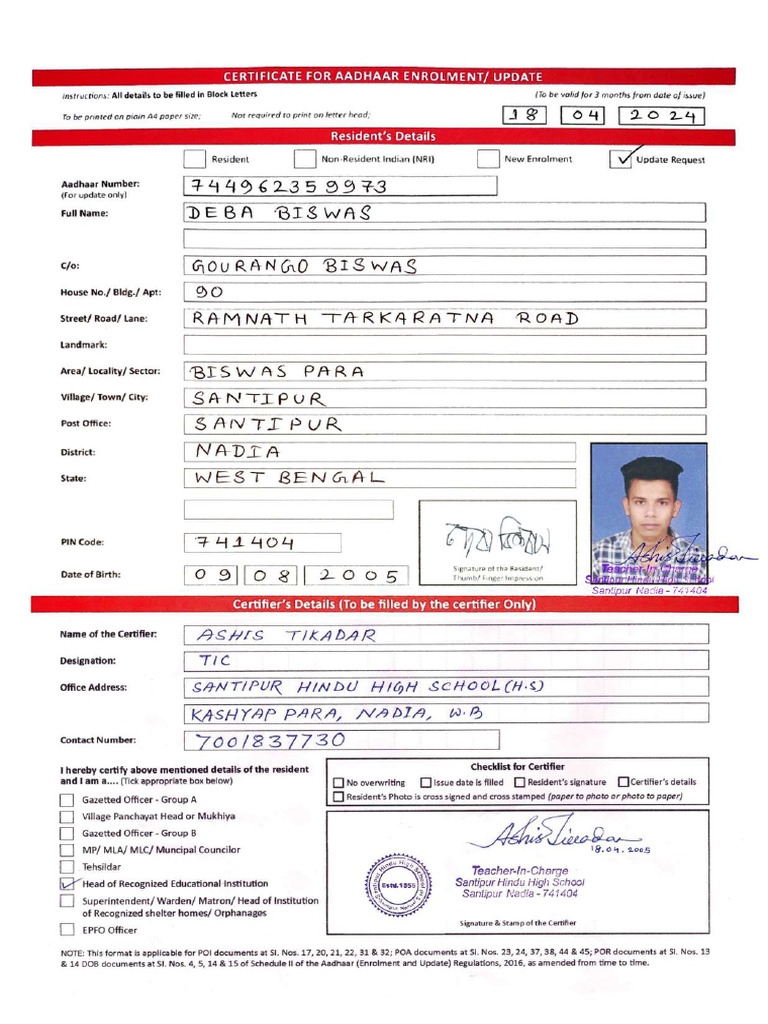 CERTIFICATE FOR AADHAAR ENROLMENT/ UPDATE
Instructions: All details to be filled in Block Letters (To be valid for 3 months from date of issue)
To be printed on plain A4 paper size; Not required to print on letter head; 18 04 2024
Resident's Details
Resident Non-Resident Indian (NRI) New Enrolment ✓ Update Request
Aadhaar Number: 744962359973
(For update only)
Full Name: DEBA BISWAS
C/o: GOURANGO BISWAS
House No./ Bldg./ Apt: 90
Street/ Road/ Lane: RAMNATH TARKARATNA ROAD
Landmark:
Area/ Locality/ Sector: BISWAS PARA
Village/ Town/ City: SANTIPUR
Post Office: SANTIPUR
District: NADIA
State: WEST BENGAL
PIN Code: 741404
দেবা বিশ্বাস
Signature of the Resident/
Thumb/ Finger Impression
Date of Birth: 09 08 2005
Ashis Tikadar
Teacher-In-Charge
Santipur Hindu High School
Santipur Nadia - 741404
Certifier's Details (To be filled by the certifier Only)
Name of the Certifier: ASHIS TIKADAR
Designation: TIC
Office Address: SANTIPUR HINDU HIGH SCHOOL(H.S)
KASHYAP PARA, NADIA, W.B
Contact Number: 7001837730
I hereby certify above mentioned details of the resident
and I am a.... (Tick appropriate box below)
Gazetted Officer - Group A
Village Panchayat Head or Mukhiya
Gazetted Officer - Group B
MP/ MLA/ MLC/ Muncipal Councilor
Tehsildar
✓ Head of Recognized Educational Institution
Superintendent/ Warden/ Matron/ Head of Institution
of Recognized shelter homes/ Orphanages
EPFO Officer
Checklist for Certifier
No overwriting Issue date is filled Resident's signature Certifier's details
Resident's Photo is cross signed and cross stamped (paper to photo or photo to paper)
Ashis Tikadar
18.04.2005
Estd. 1855
Teacher-In-Charge
Santipur Hindu High School
Santipur Nadia - 741404
Signature & Stamp of the Certifier
NOTE: This format is applicable for POI documents at Sl. Nos. 17, 20, 21, 22, 31 & 32; POA documents at Sl. Nos. 23, 24, 37, 38, 44 & 45; POR documents at Sl. Nos. 13
& 14 DOB documents at Sl. Nos. 4, 5, 14 & 15 of Schedule II of the Aadhaar (Enrolment and Update) Regulations, 2016, as amended from time to time.